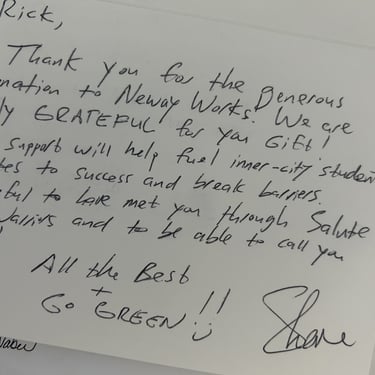 Rick,
Thank you for the Generous
nation to Neway Works. We are
ly GRATEFUL for you Gift!
support will help fuel inner-city studen
tes to success and break barriers.
ful to have met you through Salute
Warriors and to be able to call you
All the Best
+
GO GREEN!!
Shane